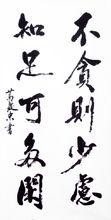 不貪則少慮
知足可多閑